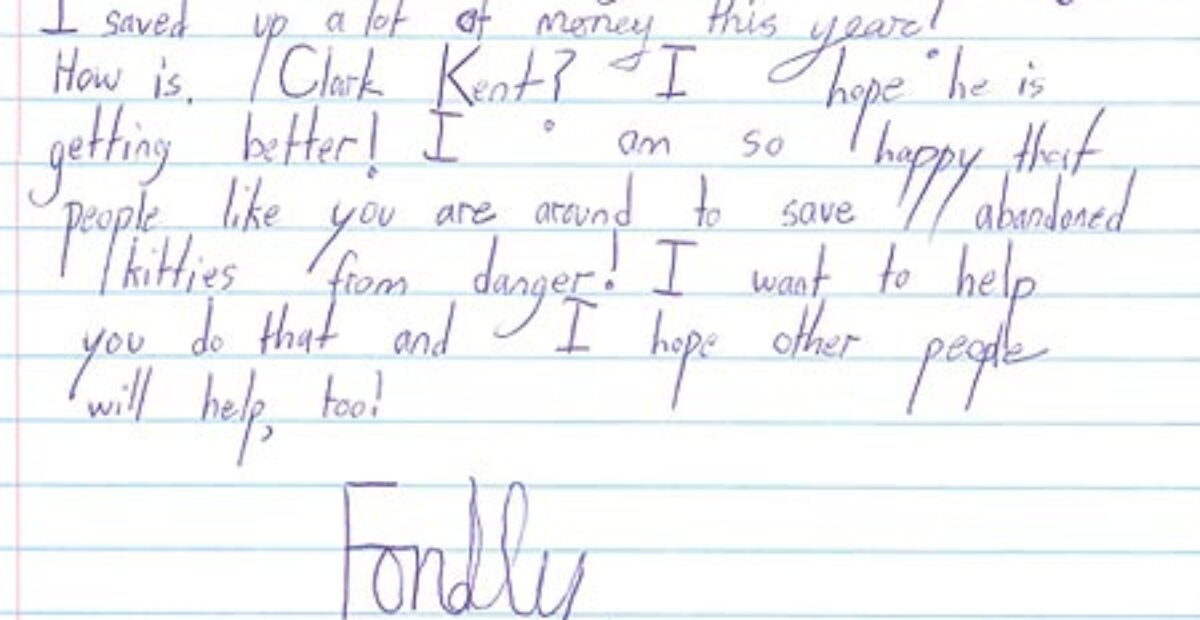 I saved up a lot of money this year!
How is Clark Kent? I hope he is
getting better! I am so happy that
people like you are around to save abandoned
kitties from danger! I want to help
you do that and I hope other people
will help, too!
Fondly